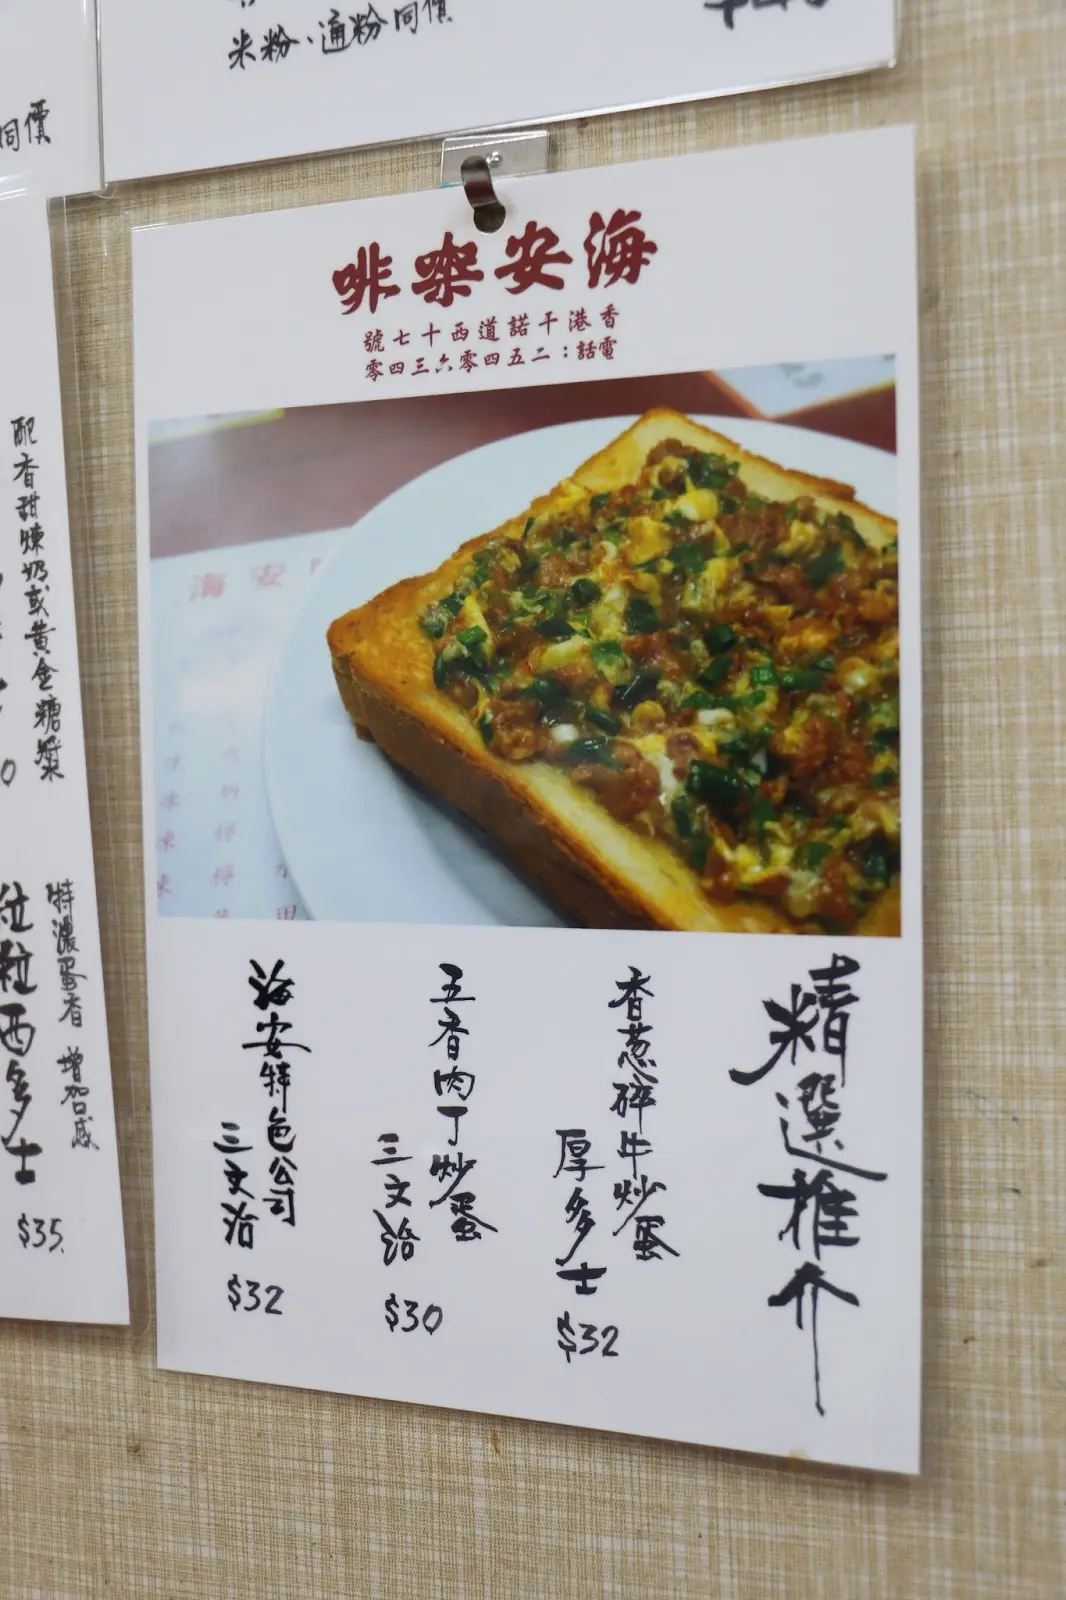 米粉、通粉同價
同價
海安㗎啡
香港干諾道西十七號
電話：二五四零六三四零
精選推介
香葱碎牛炒蛋
厚多士
$32
五香肉丁炒蛋
三文治
$30
海安特色公司
三文治
$32
配香甜煉奶或黃金糖漿
特濃蛋香 增加感
粒粒西多士
$35
海安